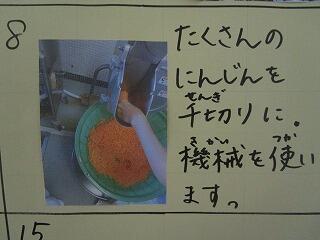 8
たくさんの
にんじんを
せんぎ
千切りに。
きかい つか
機械を使い
ます。
15